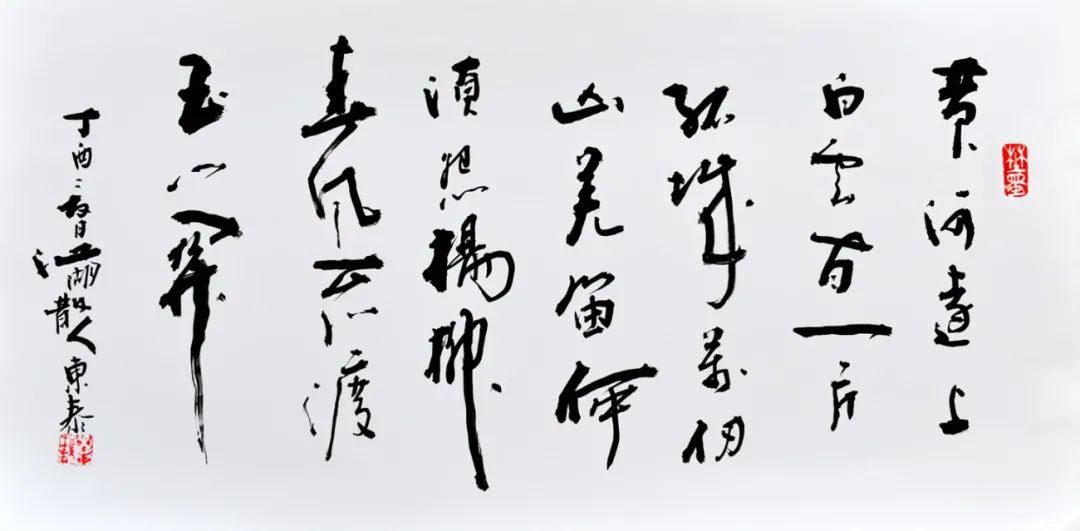 黄河遠上
白雲间一片
孤城萬仞
山羌笛何
須怨楊柳
春风不渡
玉门關
丁酉之春日江湖散人東泰